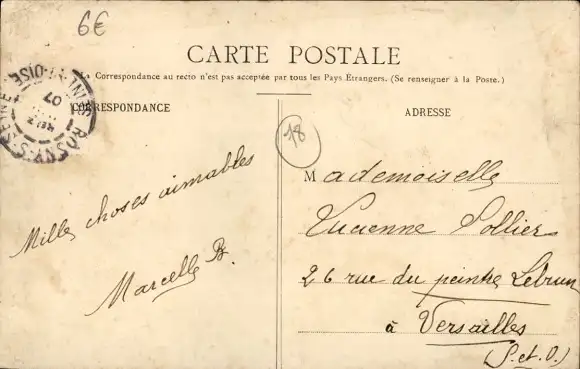 6€
CARTE POSTALE
La Correspondance au recto n'est pas acceptée par tous les Pays Étrangers. (Se renseigner à la Poste.)
CORRESPONDANCE
ADRESSE
ROSNY-S-SEINE
SEINE-ET-OISE
07
18
Mille choses aimables
Marcelle B.
Mademoiselle
Lucienne Pollier
26 rue du peintre Lebrun
à Versailles
(S. et O.)